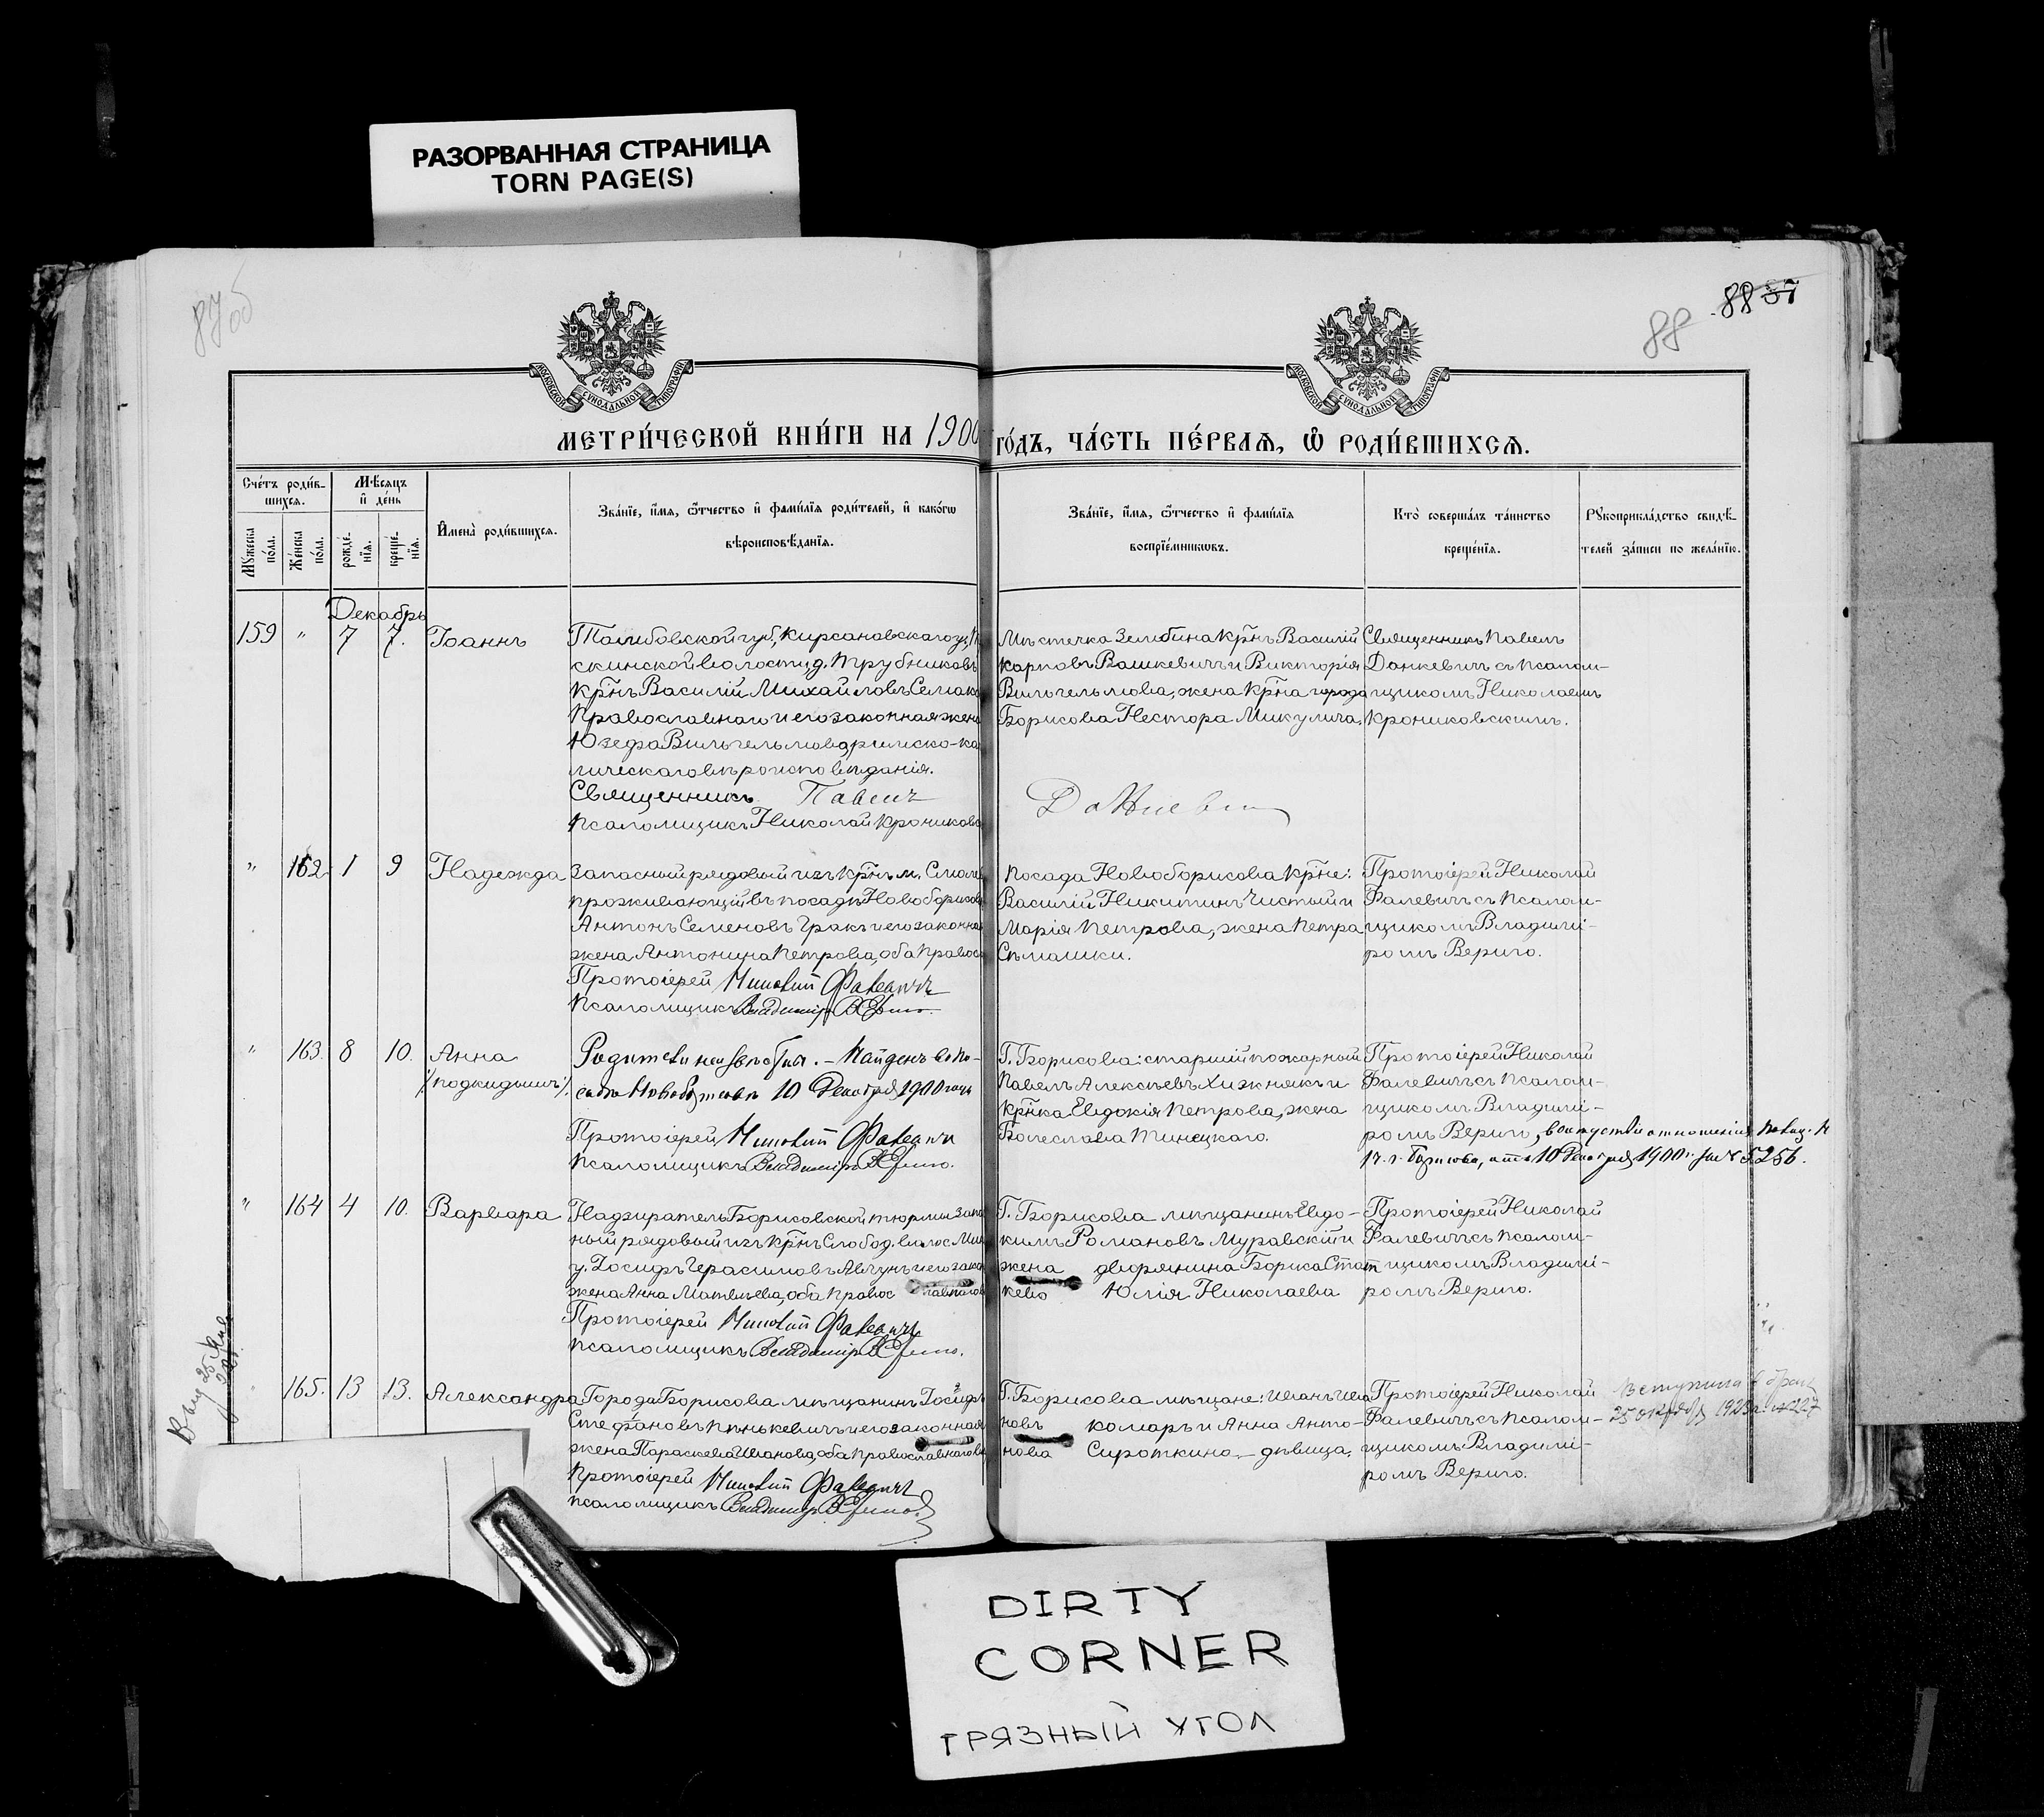 РАЗОРВАННАЯ СТРАНИЦА
TORN PAGE(S)
87об
88 37
88
МОСКОВСКОЙ СУНОДАЛЬНОЙ ТИПОГРАФІИ
МОСКОВСКОЙ СУНОДАЛЬНОЙ ТИПОГРАФІИ
МЕТРИ́ЧЕСКОЙ КНИ́ГИ НА 1900
ГО́ДЪ, ЧА́СТЬ ПЕ́РВАѦ, Ѡ҆ РОДИ́ВШИХСѦ.
Сче́тъ роди́в-
шихся.
Мѣ́сяцъ
и҆ де́нь
Мꙋжеска по́ла.
Же́нска по́ла.
рожде́-
нїя.
креще́-
нїя.
И҆мена̀ роди́вшихся.
Зва́нїе, и҆́мя, ѻ҆́тчество и҆ фами́лїя роди́телей, и҆ како́гѡ
вѣроисповѣ́данїя.
Зва́нїе, и҆́мя, ѻ҆́тчество и҆ фами́лїя
воспрїе́мникѡвъ.
Кто̀ соверша́лъ та́инство
креще́нїя.
Рꙋкоприкла́дство свидѣ́-
телей за́писи по жела́нїю.
Декабрь
159 " 7 7. Іоаннъ
Тамбовской губ., Кирсановскаго у.,
скинской волости, д. Трубниковъ
кр̃нъ Василій Михайловъ Семак
Православнаго и его законная жена
Юзефа Вильгельмова, римско-ка
лическаго вѣроисповѣданія.
Священникъ Павелъ
Псаломщикъ Николай Крониковс
Мѣстечка Зембина кр̃нъ Василій
Карповъ Вашкевичъ и Викторія
Вильгельмова, жена кр̃на города
Борисова Нестора Микулича.
Данкевич
Священникъ Павелъ
Данкевичъ съ псалом-
щикомъ Николаемъ
Крониковскимъ.
" 162 1 9 Надежда
Запасный рядовый изъ кр̃нъ м. Смолев
проживающій въ посадѣ Новоборисов
Антонъ Семеновъ Гракъ и его законна
жена Антонина Петрова, оба правос
Протоіерей Николай Фалевичъ
Псаломщикъ Владиміръ Вериго.
Посада Новоборисова кр̃не:
Василій Никитинъ Чистый и
Марія Петрова, жена Петра
Сѣмашки.
Протоіерей Николай
Фалевичъ съ псалом-
щикомъ Владимі-
ромъ Вериго.
" 163. 8 10. Анна
/подкидышъ/.
Родители неизвѣстны. – Найденъ въ по-
садѣ Новоборисовѣ 10 Декабря 1900 года
Протоіерей Николай Фалевичъ
Псаломщикъ Владиміръ Вериго.
Г. Борисова: старшій пожарный
Павелъ Алексѣевъ Хижнякъ и
кр̃нка Евдокія Петрова, жена
Болеслава Тинецкаго.
Протоіерей Николай
Фалевичъ съ псалом-
щикомъ Владимі-
ромъ Вериго, отношенія
г. Борисова, отъ 10 Декабря 1900 г. за № 5256.
" 164 4 10. Варвара
Надзиратель Борисовской тюрьмы запа
ный рядовый изъ кр̃нъ Слобод. волос. Мин
у. Іосифъ Герасимовъ Авгунъ и его зако
жена Анна Матвѣева, оба православнаго в
Протоіерей Николай Фалевичъ
Псаломщикъ Владиміръ Вериго.
Г. Борисова мѣщанинъ Евдо-
кимъ Романовъ Муравскій и
жена дворянина Бориса Стат
кево Юлія Николаева
Протоіерей Николай
Фалевичъ съ псалом-
щикомъ Владимі-
ромъ Вериго.
" 165. 13 13. Александра
Города Борисова мѣщанинъ Іосифъ
Стефановъ Пенькевичъ и его законная
жена Параскева Иванова, оба православнаго в
Протоіерей Николай Фалевичъ
Псаломщикъ Владиміръ Вериго.
Г. Борисова мѣщане: Иванъ Ива
новъ Комаръ и Анна Анто-
нова Сироткина – дѣвица.
Протоіерей Николай
Фалевичъ съ псалом-
щикомъ Владимі-
ромъ Вериго.
Вступила в брак
25 октября 1923 г. № 227
DIRTY
CORNER
ГРЯЗНЫЙ УГОЛ